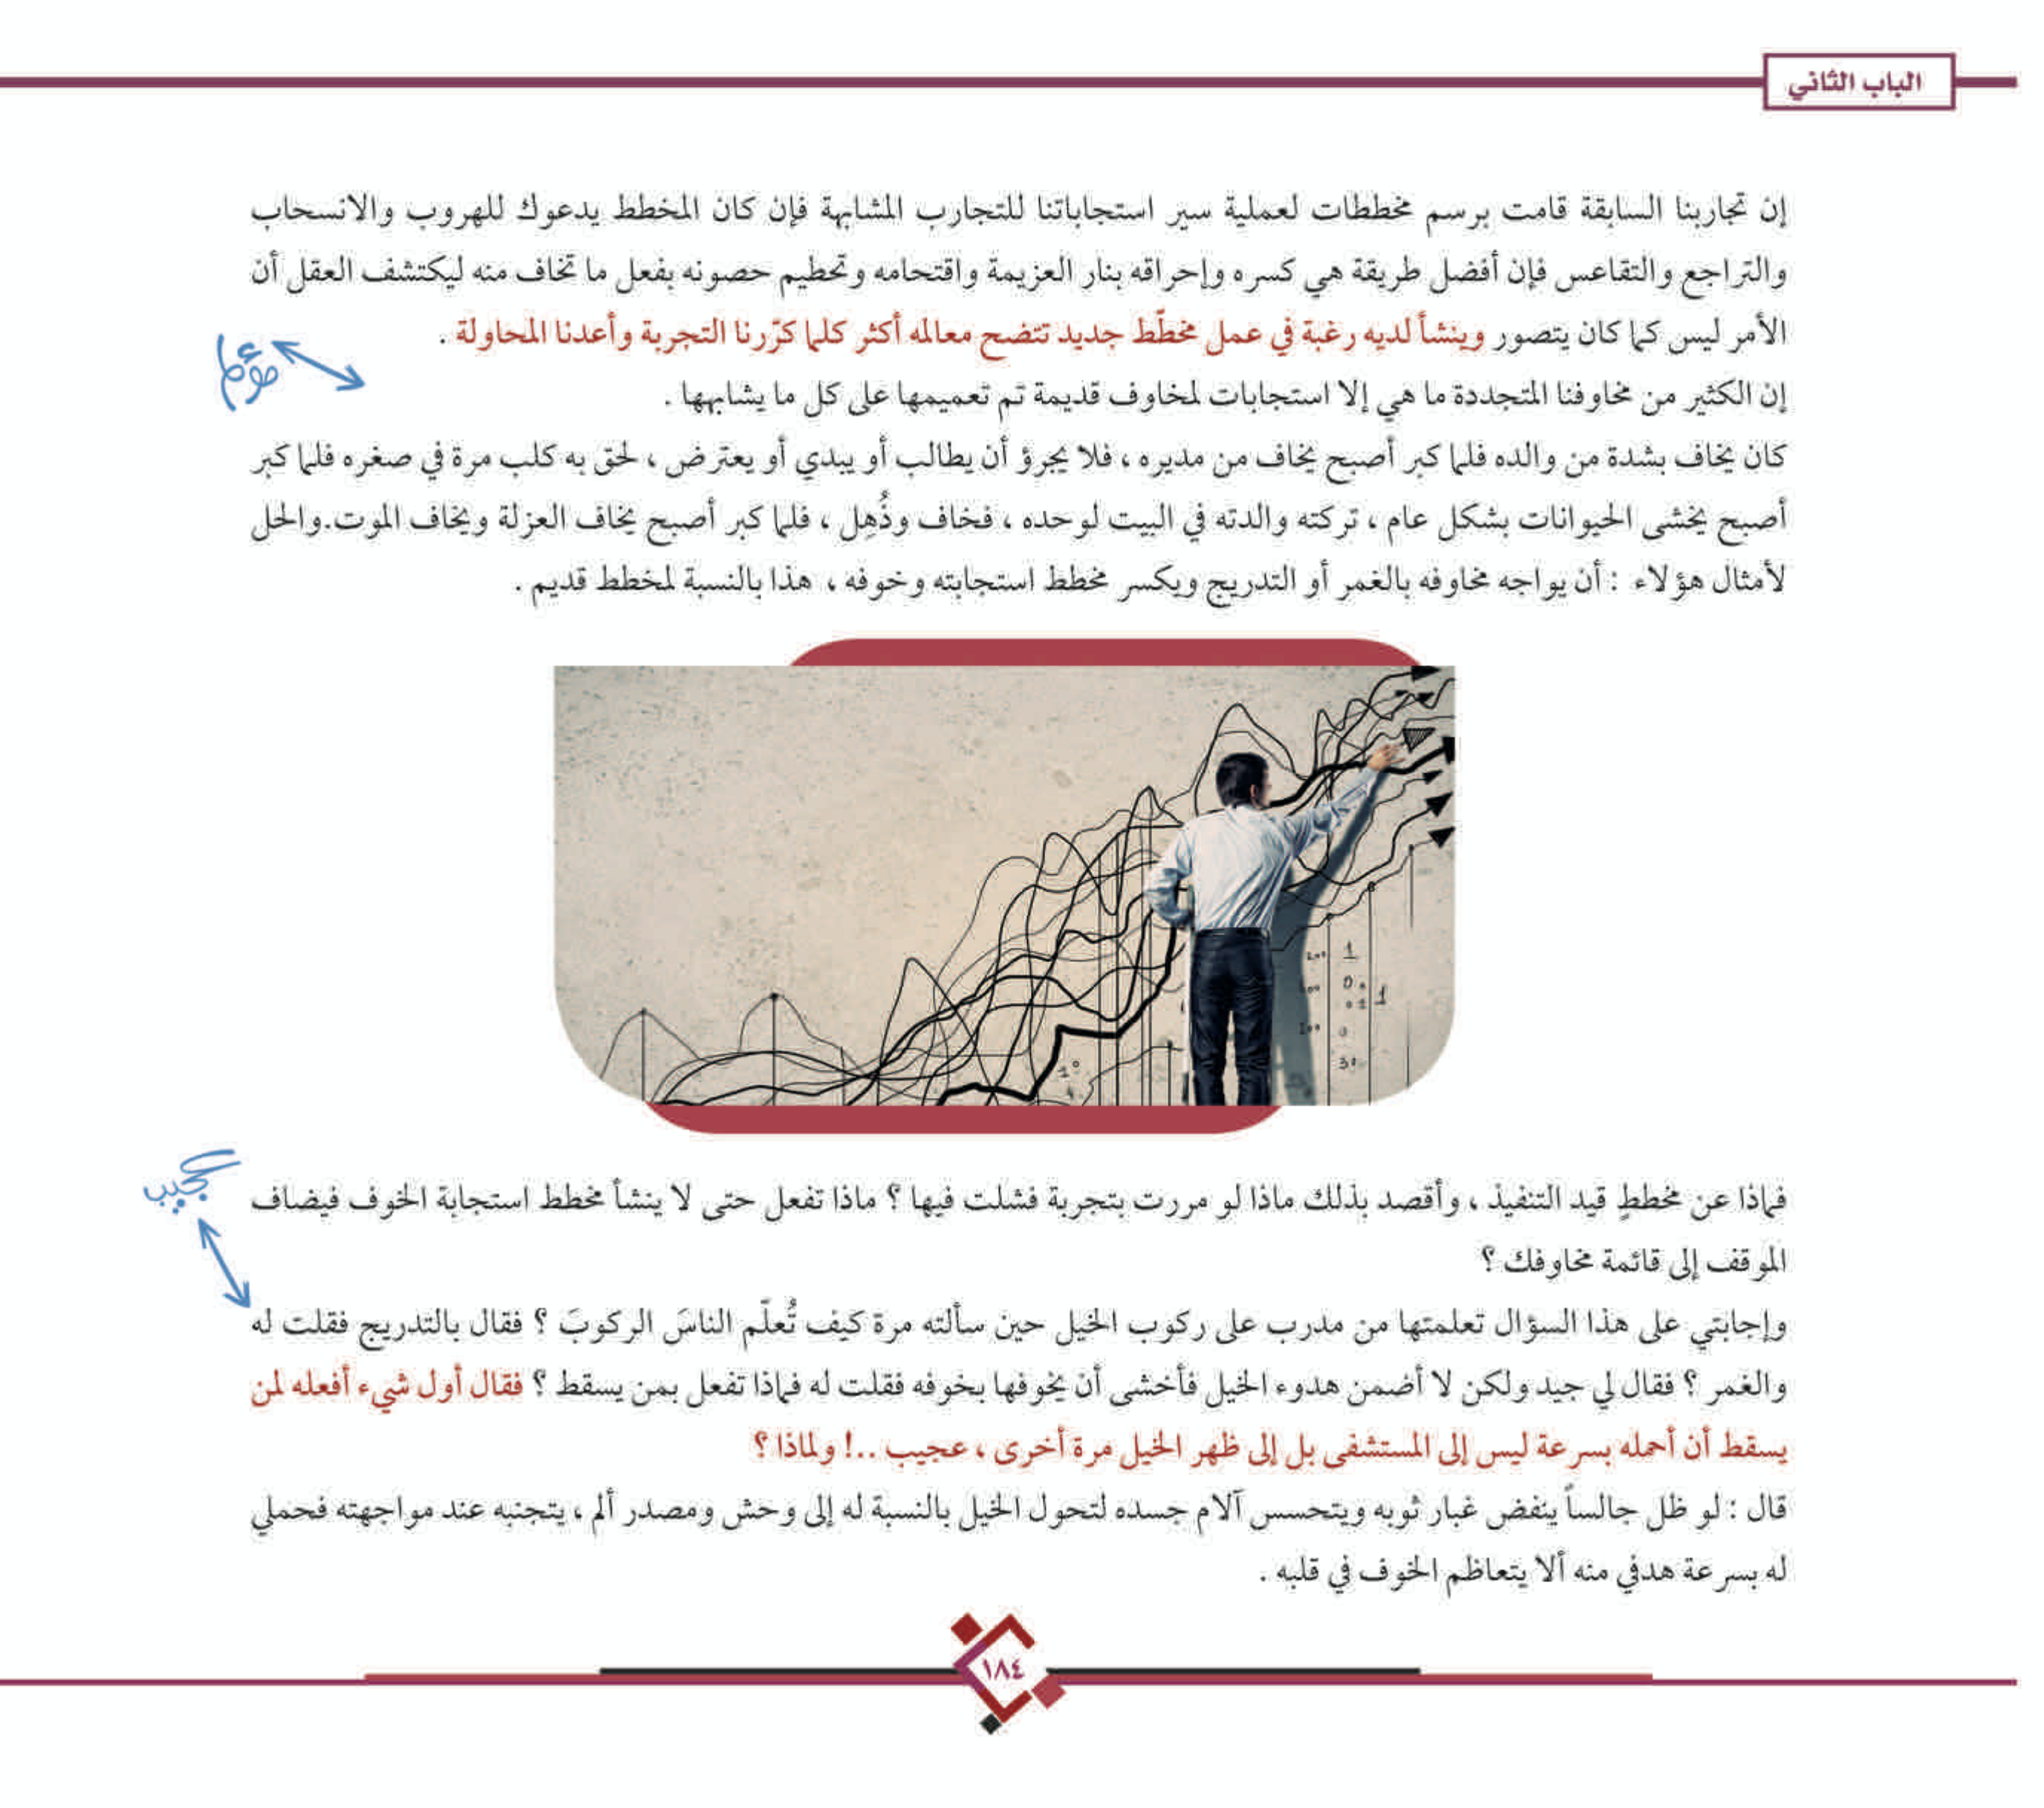 الباب الثاني
إن تجاربنا السابقة قامت برسم مخططات لعملية سير استجاباتنا للتجارب المشابهة فإن كان المخطط يدعوك للهروب والانسحاب
والتراجع والتقاعس فإن أفضل طريقة هي كسره وإحراقه بنار العزيمة واقتحامه وتحطيم حصونه بفعل ما تخاف منه ليكتشف العقل أن
الأمر ليس كما كان يتصور وينشأ لديه رغبة في عمل مخطّط جديد تتضح معالمه أكثر كلما كرّرنا التجربة وأعدنا المحاولة .
إن الكثير من مخاوفنا المتجددة ما هي إلا استجابات لمخاوف قديمة تم تعميمها على كل ما يشابهها .
كان يخاف بشدة من والده فلما كبر أصبح يخاف من مديره ، فلا يجرؤ أن يطالب أو يبدي أو يعترض ، لحق به كلب مرة في صغره فلما كبر
أصبح يخشى الحيوانات بشكل عام ، تركته والدته في البيت لوحده ، فخاف وذُهِل ، فلما كبر أصبح يخاف العزلة ويخاف الموت.والحل
لأمثال هؤلاء : أن يواجه مخاوفه بالغمر أو التدريج ويكسر مخطط استجابته وخوفه ، هذا بالنسبة لمخطط قديم .
عجيب
فماذا عن مخططٍ قيد التنفيذ ، وأقصد بذلك ماذا لو مررت بتجربة فشلت فيها ؟ ماذا تفعل حتى لا ينشأ مخطط استجابة الخوف فيضاف
الموقف إلى قائمة مخاوفك ؟
وإجابتي على هذا السؤال تعلمتها من مدرب على ركوب الخيل حين سألته مرة كيف تُعلّم الناسَ الركوبَ ؟ فقال بالتدريج فقلت له
والغمر ؟ فقال لي جيد ولكن لا أضمن هدوء الخيل فأخشى أن يخوفها بخوفه فقلت له فماذا تفعل بمن يسقط ؟ فقال أول شيء أفعله لمن
يسقط أن أحمله بسرعة ليس إلى المستشفى بل إلى ظهر الخيل مرة أخرى ، عجيب ..! ولماذا ؟
قال : لو ظل جالساً ينفض غبار ثوبه ويتحسس آلام جسده لتحول الخيل بالنسبة له إلى وحش ومصدر ألم ، يتجنبه عند مواجهته فحملي
له بسرعة هدفي منه ألا يتعاظم الخوف في قلبه .
١٨٤